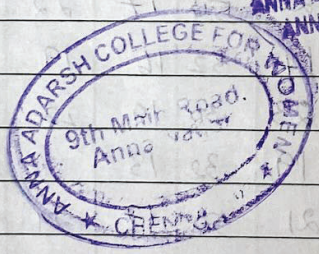 ANNA ADARSH COLLEGE FOR WOMEN
9th Main Road.
Anna
CHENNAI
ANNA
ANN
21